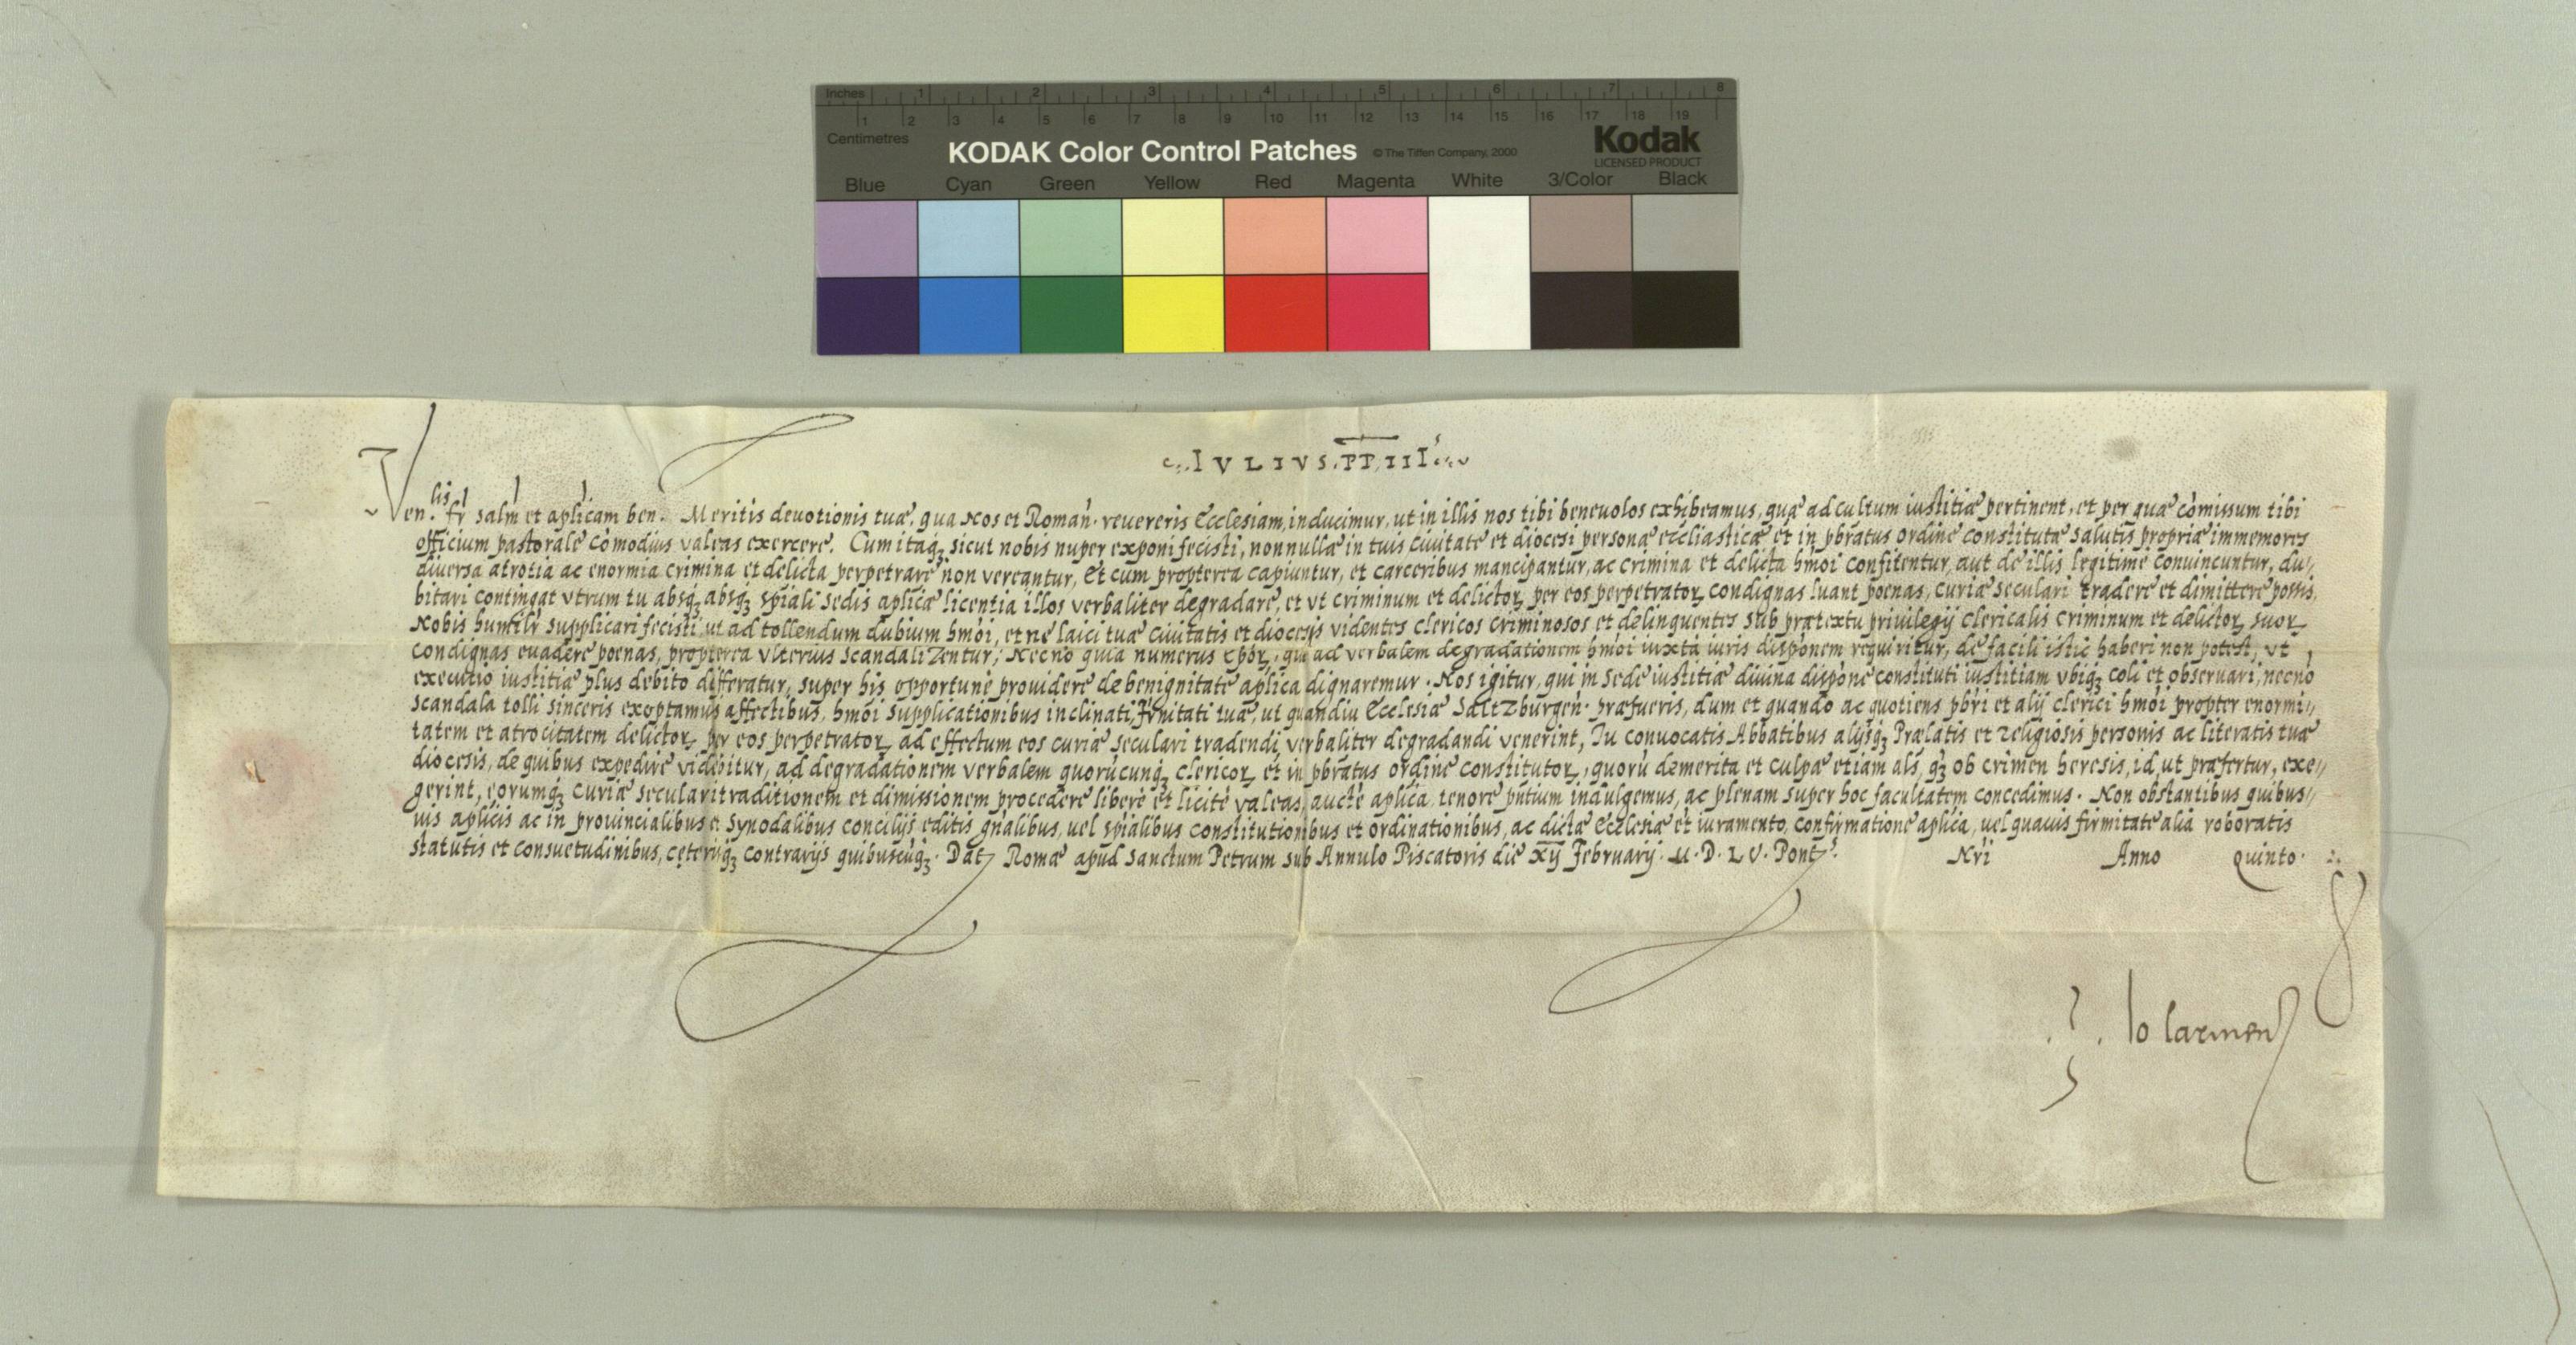 Inches 1 2 3 4 5 6 7 8
1 2 3 4 5 6 7 8 9 10 11 12 13 14 15 16 17 18 19
Centimetres
KODAK Color Control Patches © The Tiffen Company, 2000 Kodak
LICENSED PRODUCT
Blue Cyan Green Yellow Red Magenta White 3/Color Black
IVLIVS. PP. III.
Ven.lis fr̃ salm̃ et aplicam ben. Meritis deuotionis tuæ, qua Nos et Roman. reuereris Ecclesiam, inducimur, ut in illis nos tibi beneuolos exhibeamus, quæ ad cultum iustitiæ pertinent, et per quæ cõmissum tibi
officium pastorale cõmodius valeas exercere. Cum itaqȝ sicut nobis nuper exponi fecisti, nonnullæ in tuis ciuitate et diocesi personæ eccliasticæ et in pbratus ordine constitutæ salutis propriæ immemores
diuersa atrotia ac enormia crimina et delicta perpetrare non vereantur, Et cum propterea capiuntur, et carceribus mancipantur, ac crimina et delicta hmõi confitentur, aut de illis legitime conuincuntur, du//
bitari contingat vtrum tu absqȝ absqȝ spiali sedis aplicæ licentia illos verbaliter degradare, et vt criminum et delictoꝝ per eos perpetratoꝝ condignas luant poenas, curiæ seculari tradere et dimittere possis,
Nobis humilr̃ supplicari fecisti, ut ad tollendum dubium hmõi, et ne laici tuæ ciuitatis et diocesis videntes clericos criminosos et delinquentes sub prætextu priuilegij clericalis criminum et delictoꝝ suoꝝ
condignas euadere poenas, propterea vlterius scandalizentur; Necnõ quia numerus Epoꝝ, qui ad verbalem degradationem hmõi iuxta iuris dispõnem requiritur, de facili istic haberi non potest, vt
executio iustitiæ plus debito differatur, super his opportune prouidere de benignitate aplica dignaremur. Nos igitur, qui in sede iustitiæ diuina dispõne constituti iustitiam vbiqȝ coli et obseruari, necnõ
scandala tolli sinceris exoptamus affectibus, hmõi supplicationibus inclinati, Frnitati tuæ, ut quandiu Ecclesiæ Saltzburgen. præfueris, dum et quando ac quotiens pbri et alij clerici hmõi propter enormi//
tatem et atrocitatem delictoꝝ per eos perpetratoꝝ ad effectum eos curiæ seculari tradendi, verbaliter degradandi venerint, Tu conuocatis Abbatibus alijsqȝ Prælatis et religiosis personis ac literatis tuæ
diocesis, de quibus expedire videbitur, ad degradationem verbalem quorũcunqȝ clericoꝝ et in pbratus ordine constitutoꝝ, quorũ demerita et culpæ etiam als qȝ ob crimen heresis, id, ut præfertur, exe//
gerint, eorumqȝ curiæ seculari traditionem et dimissionem procedere libere et licite valeas, aucte aplica, tenore pñtium indulgemus, ac plenam super hoc facultatem concedimus. Non obstantibus quibus//
uis aplicis ac in prouincialibus et synodalibus concilijs editis gñalibus, uel spialibus constitutionibus et ordinationibus, ac dictæ Ecclesiæ et iuramento, confirmatione aplica, uel quauis firmitate alia roboratis
statutis et consuetudinibus, ceterisqȝ contrarijs quibuscũqȝ. Dat Romæ apud Sanctum Petrum sub Annulo Piscatoris die xij Februarij. M.D.LV. Pont. Nri Anno Quinto.